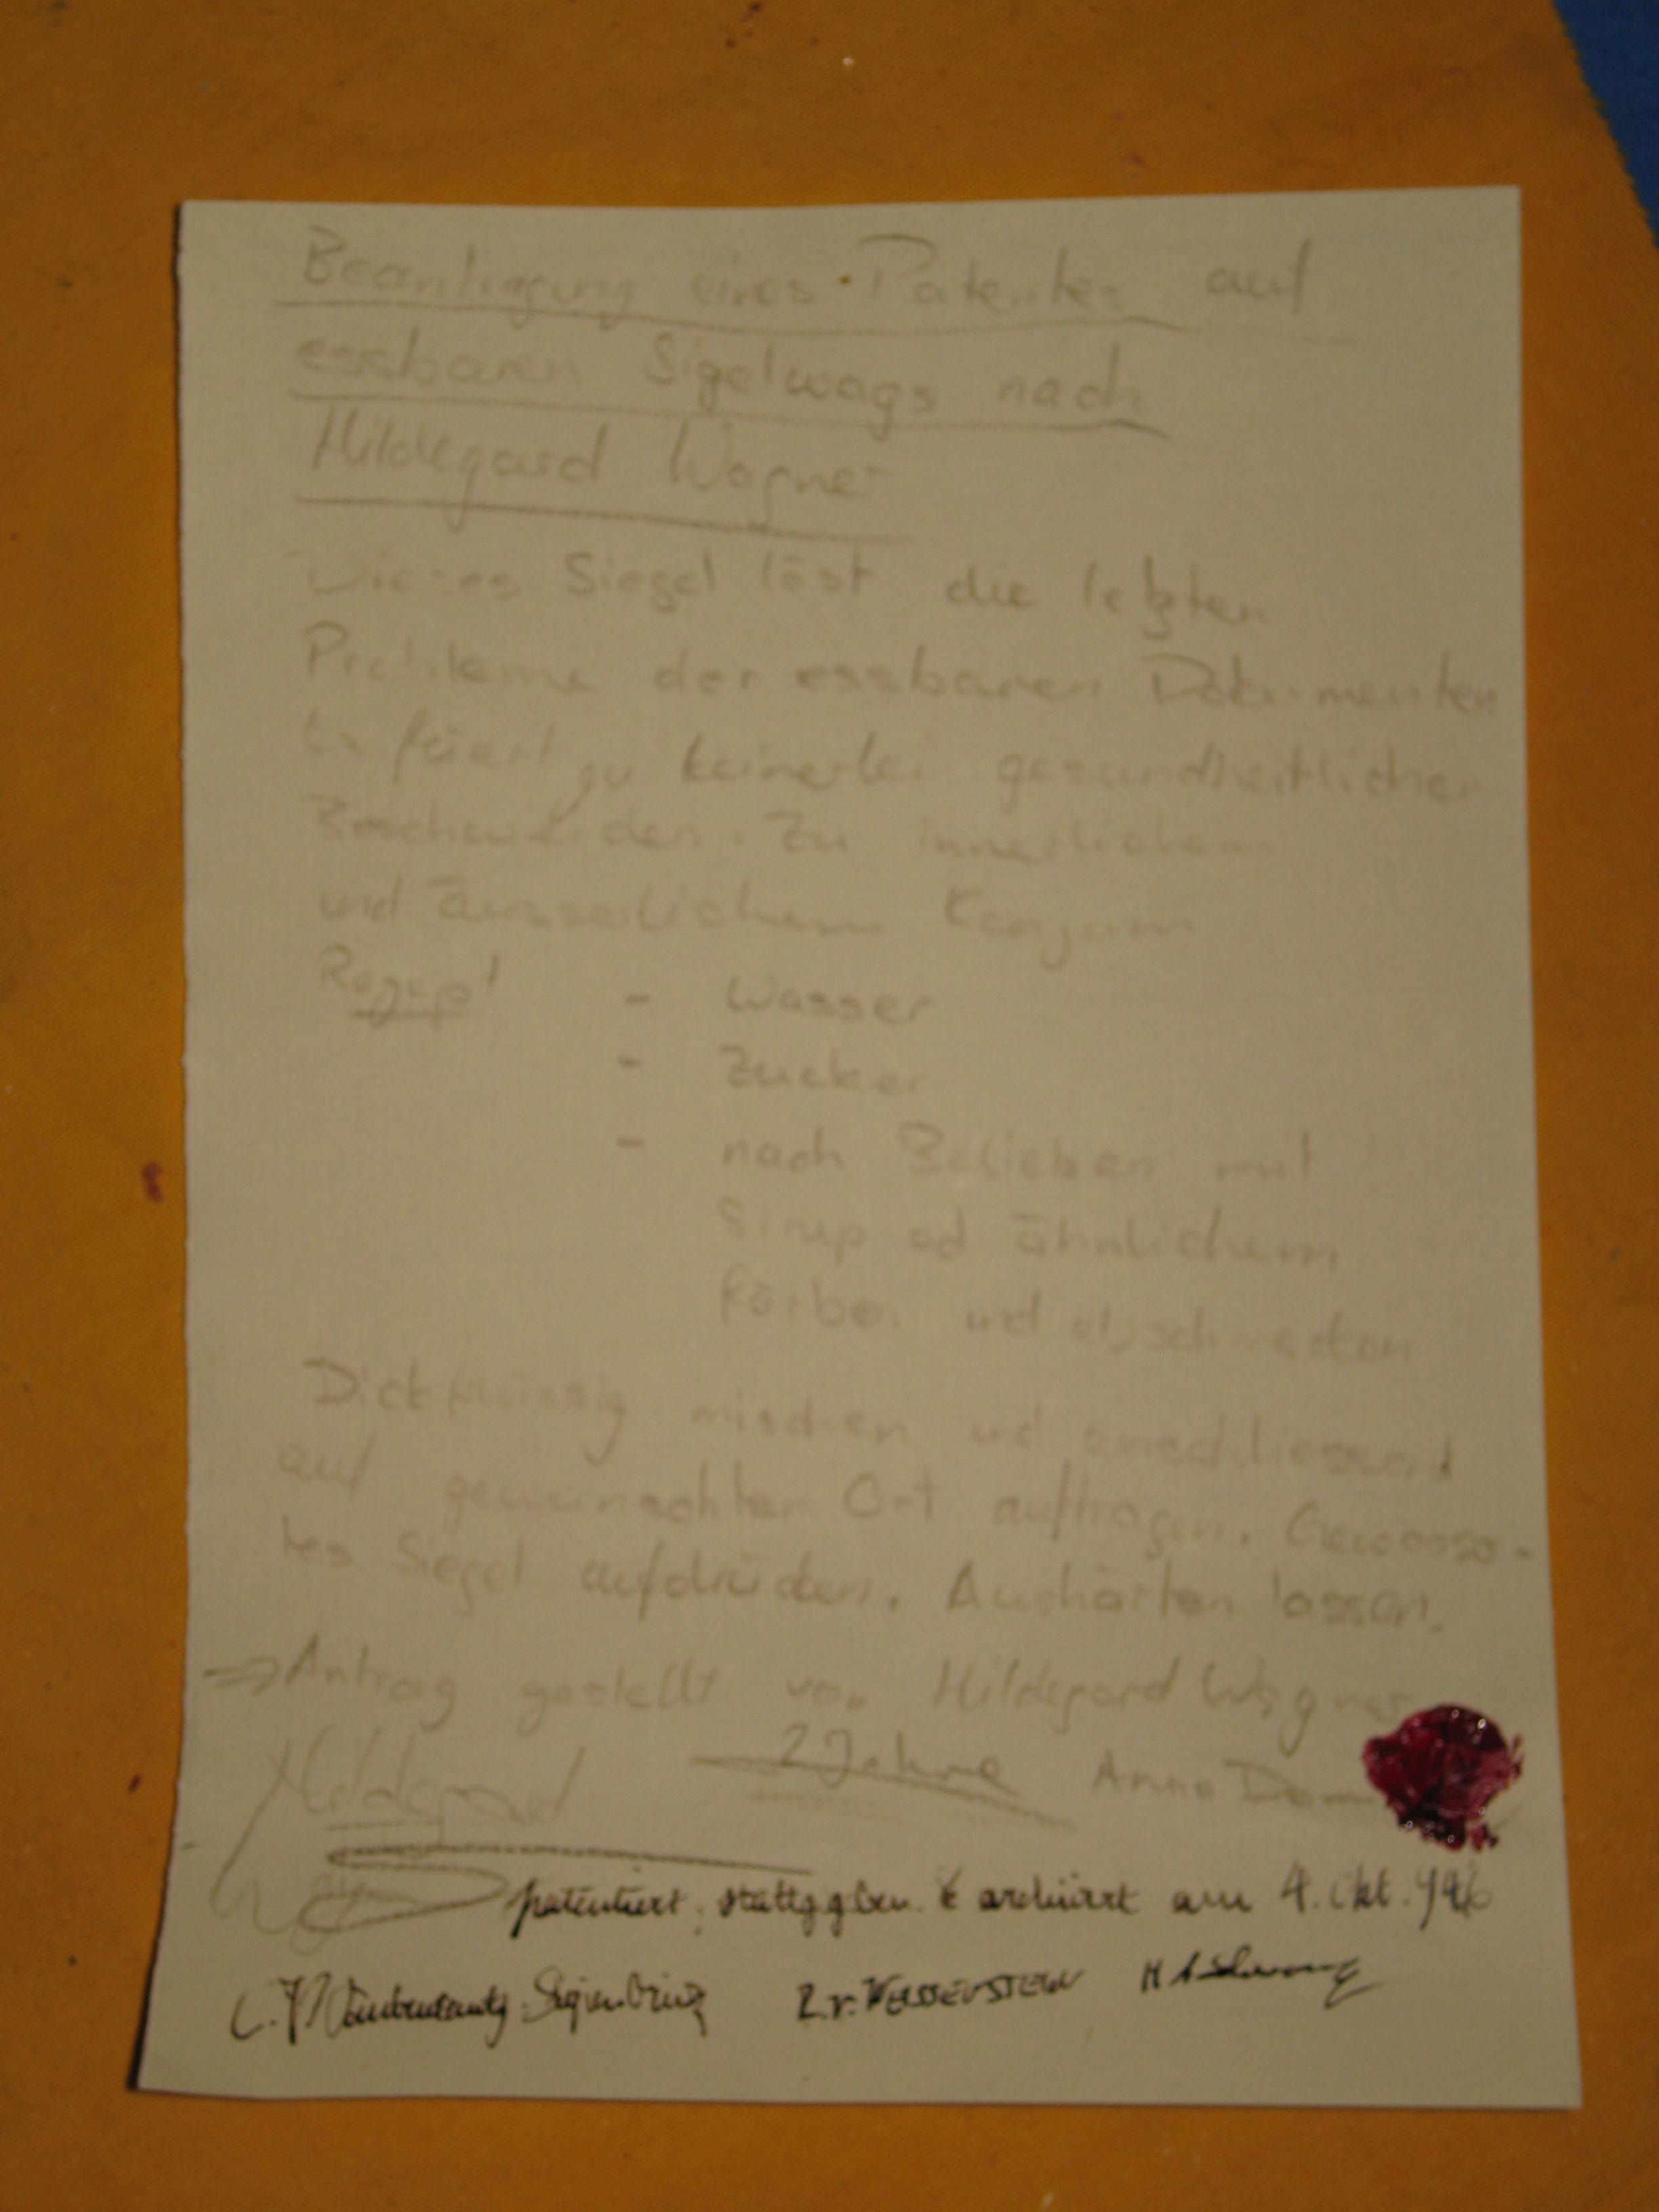 Beantragung eines Patentes auf
essbaren Sigelwags nach
Hildegard Wagner
Dieses Siegel löst die letzten
Probleme der essbaren Dokumenten
zu keinerlei gesundheitlicher
Beschwerden. Zu innerlichem
und äusserlichem Konsum
- Wasser
- Zucker
- nach Belieben mit
Sirup od ähnlichem
färben und abschmecken
Dickflüssig mischen und anschliessend
auf gewünschten Ort auftragen.
Siegel aufdrücken. Aushärten lassen.
⇒ Antrag gestellt von Hildegard Wagner
Hildegard 2 Jahre Anno Dom
patentiert, am 4. Okt.